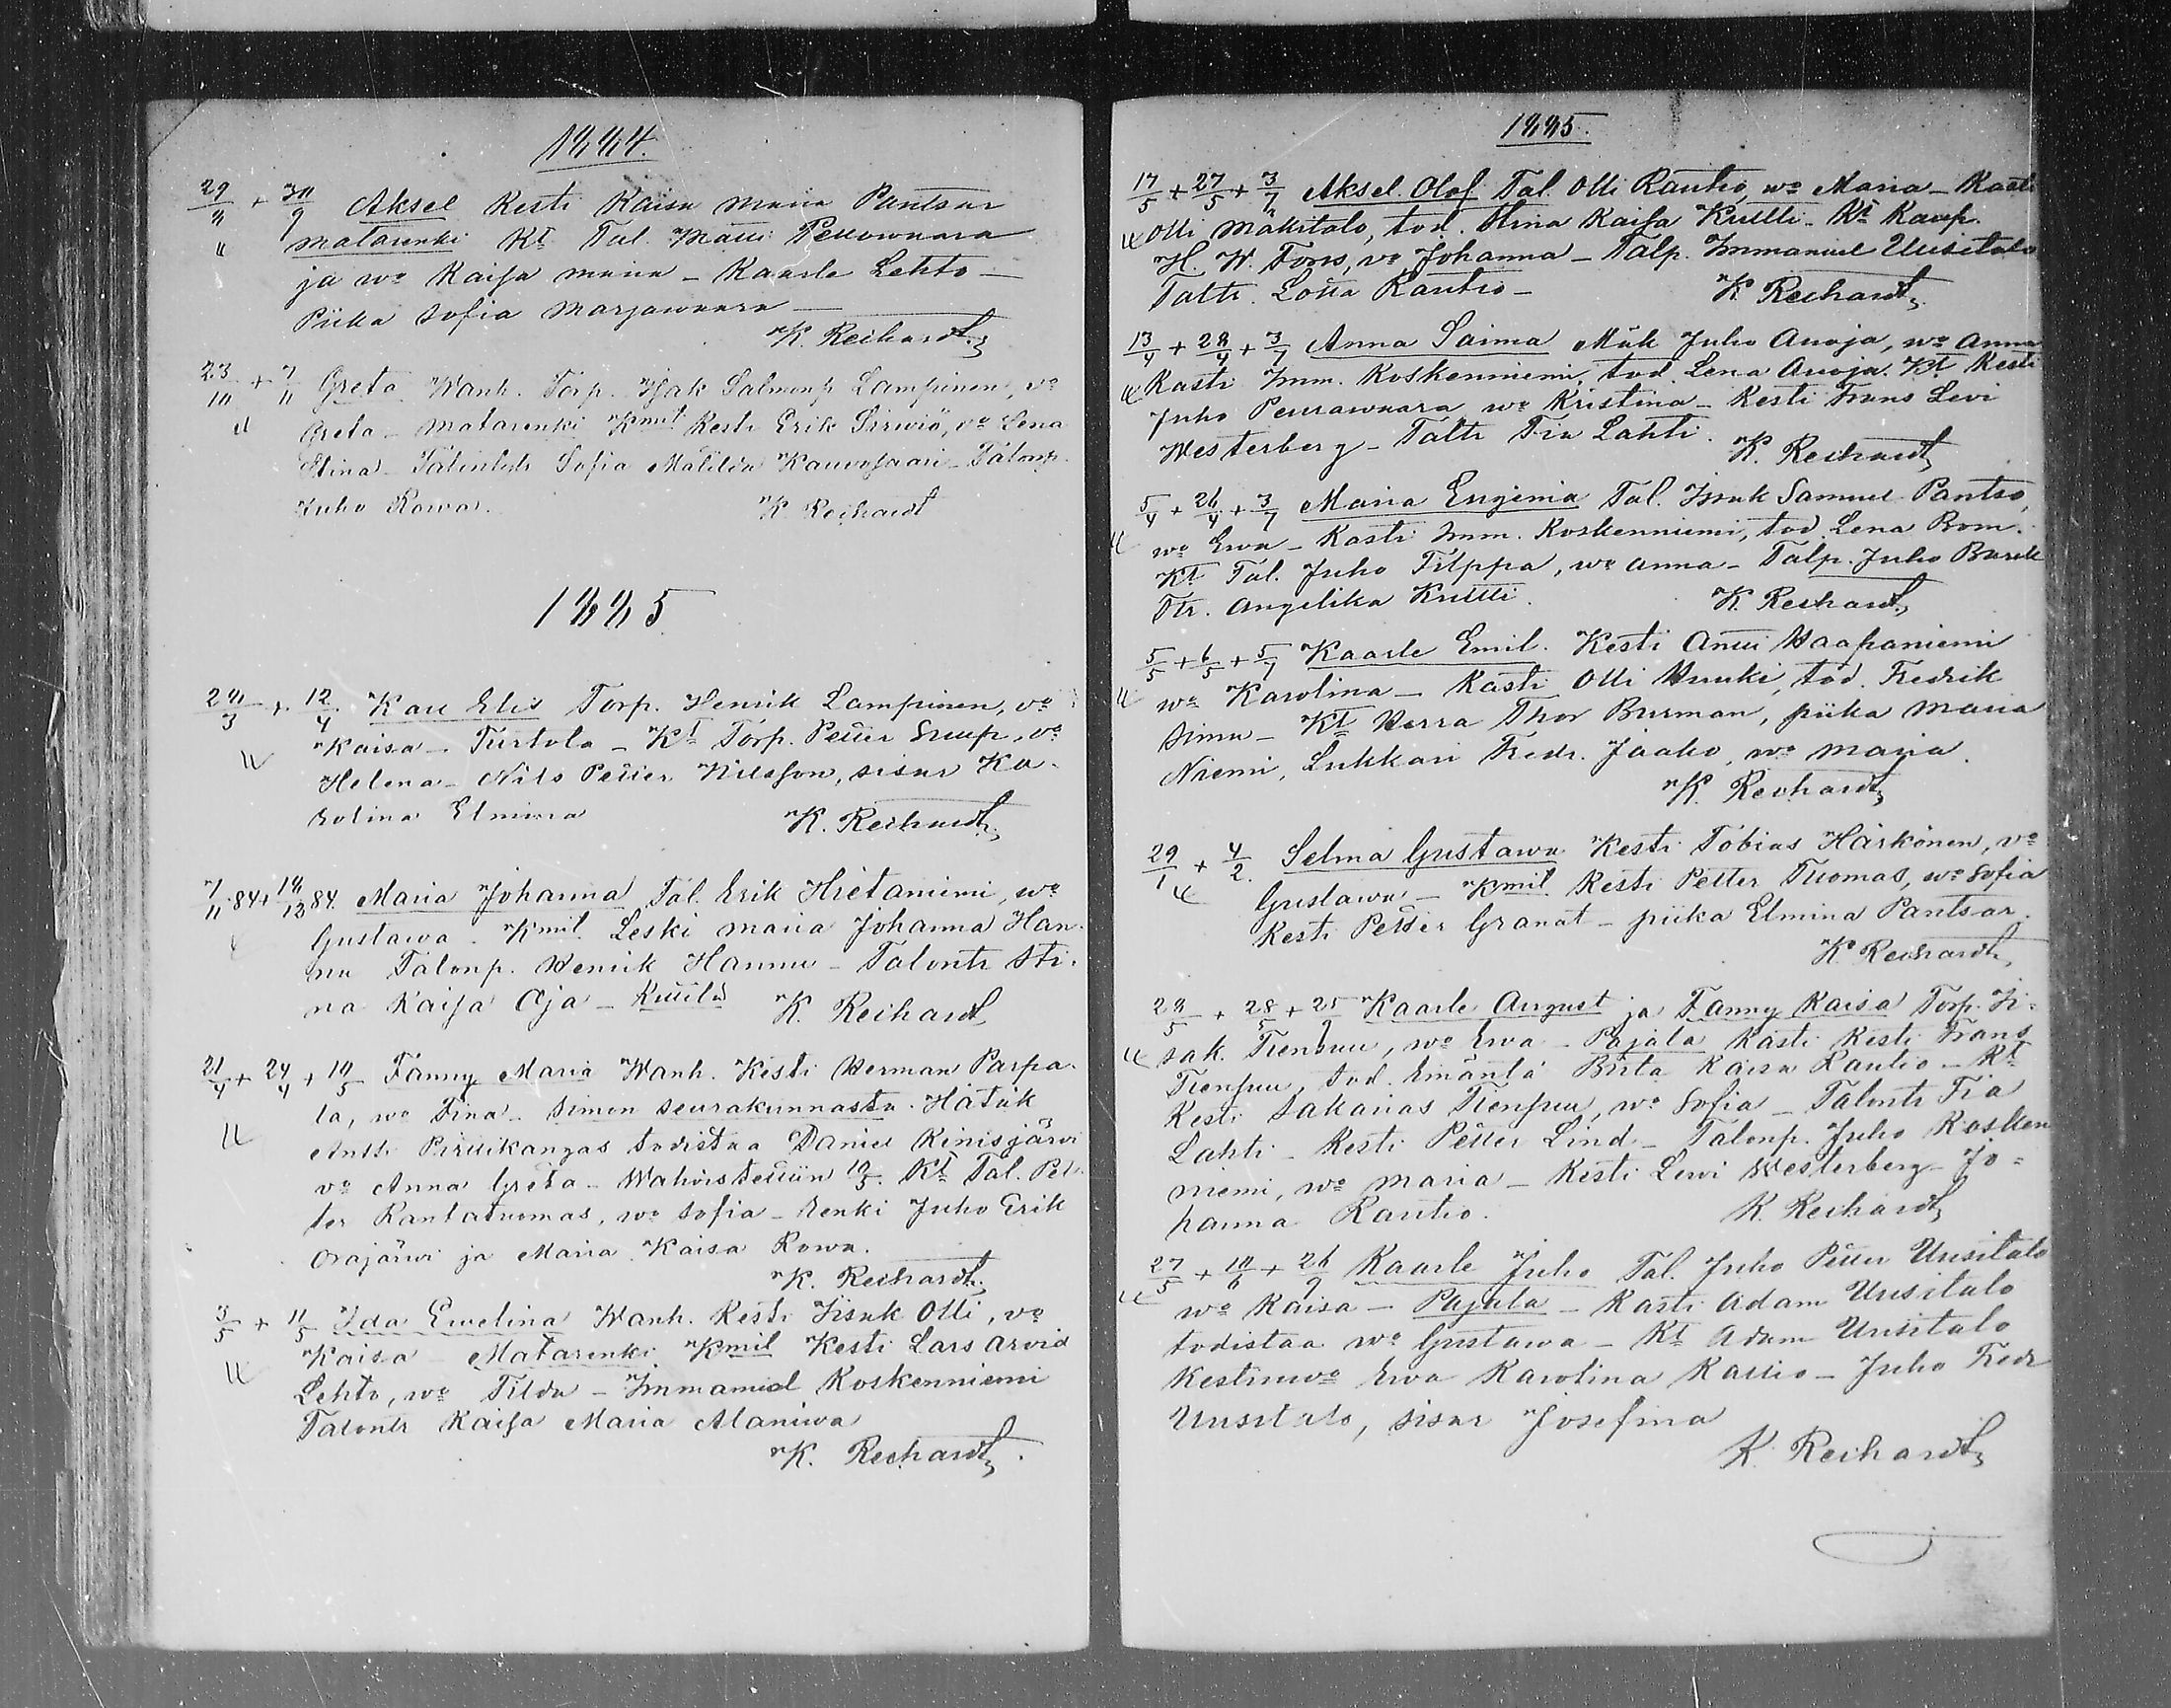 1884.
29/8 + 30/9 Aksel Kesti Kaisa Maria Pantsar
Matarenki Kt Tal. Matti Pellowaara
ja wo Kaisa Maria - Kaarle Lehto -
Piika Sofia Marjawaara -
K. Reihardt
23/10 + 7/11 Greta Wanh. Torp. Isak Salmonp Lampinen, vo
Greta - Matarenki Kmit Kesti Erik Sirwiö, vo Lena
Stina - Talontytr Sofia Matilda Kauvosaari - Talonp.
Juho Rowa.
K Reihardt
1885
28/3 + 12/4 Karl Elis Torp. Henrik Lampinen, vo
Kaisa - Turtola - Kt Torp. Petter Snup, vo
Helena - Nils Petter Nilsson, sisar Ka-
rolina Elmina
K. Reihardt
7/11 84 + 14/12 84. Maria Johanna Tal. Erik Hietaniemi, wo
Gustawa. Kmit. Leski Maria Johanna Han-
nu Talonp. Henrik Hannu - Talontr Sti-
na Kaisa Oja - Kuttila
K. Reihardt
21/4 + 24/4 + 10/5 Fanny Maria Wanh. Kesti Herman Parpa-
la, wo Fina - Simon seurakunnasta. Hätäk
Antti Piruikangas todistaa Daniel Kinisjärvi
vo Anna Greta - Wahvistettiin 10/5. Kt Tal. Pet-
ter Rantatuomas, wo Sofia - Renki Juho Erik
Orajärwi ja Maria Kaisa Rowa.
K. Reihardt
3/5 + 11/5 Ida Ewelina Wanh. Kesti Iisak Olli, vo
Kaisa - Matarenki Kmit Kesti Lars Arvid
Lehto, wo Tilda - Immanuel Koskenniemi
Talontr Kaisa Maria Alaniwa
K. Reihardt.
1885.
17/5 + 27/5 + 3/7 Aksel Olof Tal Olli Rautio, wo Maria - Kasti
Olli Mäkitalo, tod. Stina Kaisa Kuttli. Kt Kaup.
H. W. Forss, vo Johanna - Talp. Immanuel Uusitalo
Taltr. Lotta Rautio -
K. Reihardt
13/4 + 28/4 + 3/7 Anna Saima Mäk Juho Auoja, wo Anna
Kasti Imm. Koskenniemi, tod. Lena Auoja. Kt Kesti
Juho Peurawaara wo Kristina - Kesti Frans Levi
Westerberg - Taltr Fia Lahti.
K. Reihardt
5/4 + 26/4 + 3/7 Maria Eugenia Tal. Isak Samuel Pantso,
wo Ewa - Kasti Imm. Koskenniemi, tod. Lena Rom.
Kt Tal. Juho Filppa, wo Anna - Talp. Juho Barck
Ttr. Angelika Kuttli.
K. Reihardt
5/5 + 6/5 + 5/7 Kaarle Emil. Kesti Antti Haapaniemi
wo Karolina - Kasti Olli Huuki, tod. Fredrik
Simu - Kt Herra Thor Burman, piika Maria
Niemi, Lukkari Fredr. Jaako, wo Maria.
K. Reihardt
29/1 + 4/2. Selma Gustawa Kesti Tobias Härkönen, vo
Gustawa - Kmit. Kesti Petter Tuomas, wo Sofia
Kesti Petter Granat - piika Elmina Pantsar.
K. Reihardt
28/5 + 28/5 + 25/9 Kaarle August ja Fanny Kaisa Torp. Ii-
sak. Tiensuu, wo Ewa - Pajala Kasti Kesti Frans
Tiensuu, tod. Emäntä Brita Kaisa Rautio - Kt
Kesti Sakarias Tiensuu, wo Sofia - Talontr Fia
Lahti - Kesti Petter Lind - Talonp. Juho Kosken
niemi, wo Maria - Kesti Lewi Westerberg - Jo-
hanna Rautio.
K. Reihardt
27/5 + 10/6 + 26/9 Kaarle Juho Tal. Juho Petter Uusitalo
wo Kaisa - Pajala - Kasti Adam Uusitalo
todistaa wo Gustawa - Kt Adam Uusitalo
Kestinwo Ewa Karolina Kallio - Juho Fredr
Uusitalo, sisar Josefina
K. Reihardt